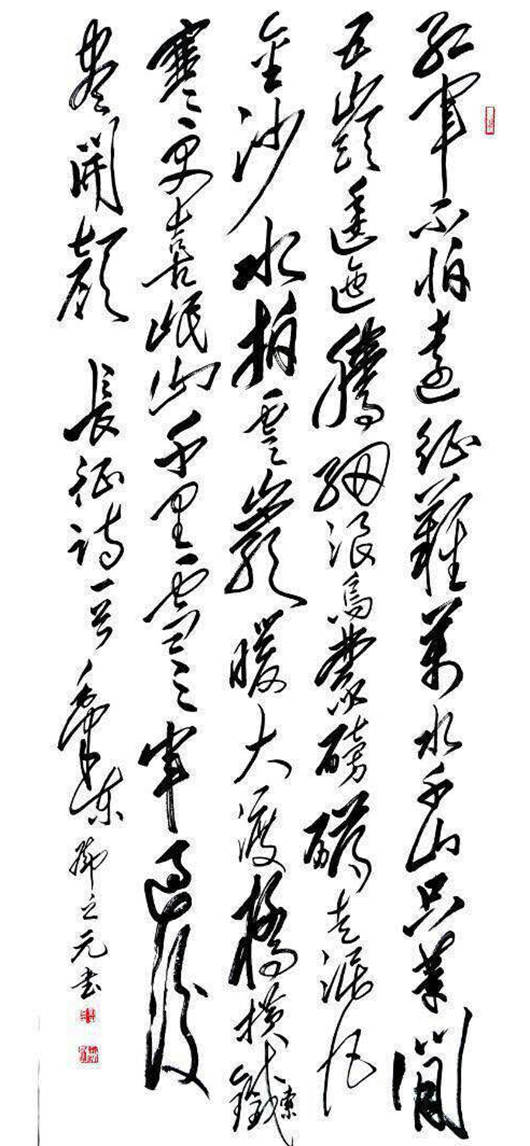 紅軍不怕遠征難萬水千山只等閒
五嶺逶迤騰細浪烏蒙磅礴走泥丸
金沙水拍雲巖暖大渡橋橫鐵索
寒更喜岷山千里雪三軍過後
盡開顏 長征詩一首 毛澤东 之元书